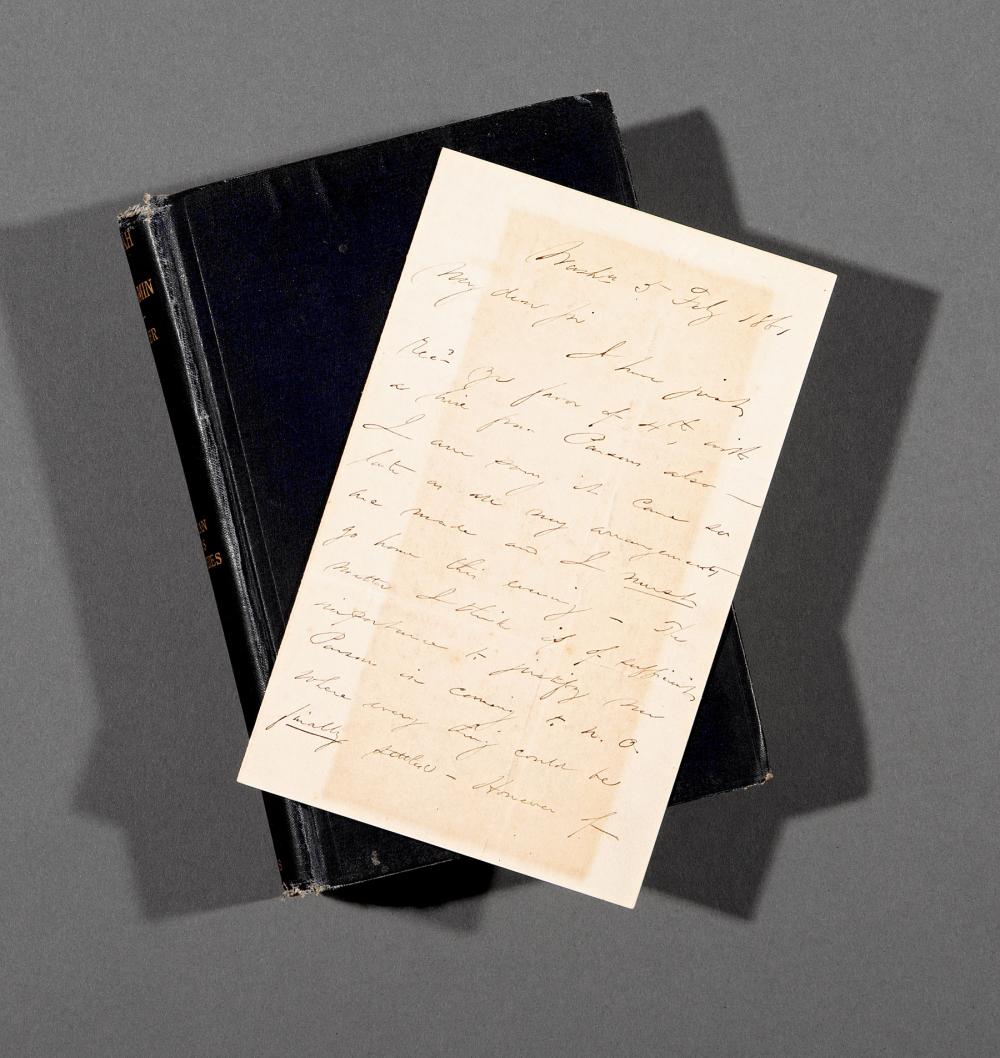 AH
MIN
ER
AN
S
IES
S
Washn 5 Feby 1861
My dear Sir
I have just
Recd yr favor of 4th inst
a line from Parsons also —
I am sorry it came so
late as all my arrangements
are made and I must
go home this evening — The
matter I think is of sufficient
importance to justify
Parsons in coming to N. O.
where every thing could be
finally settled — However if